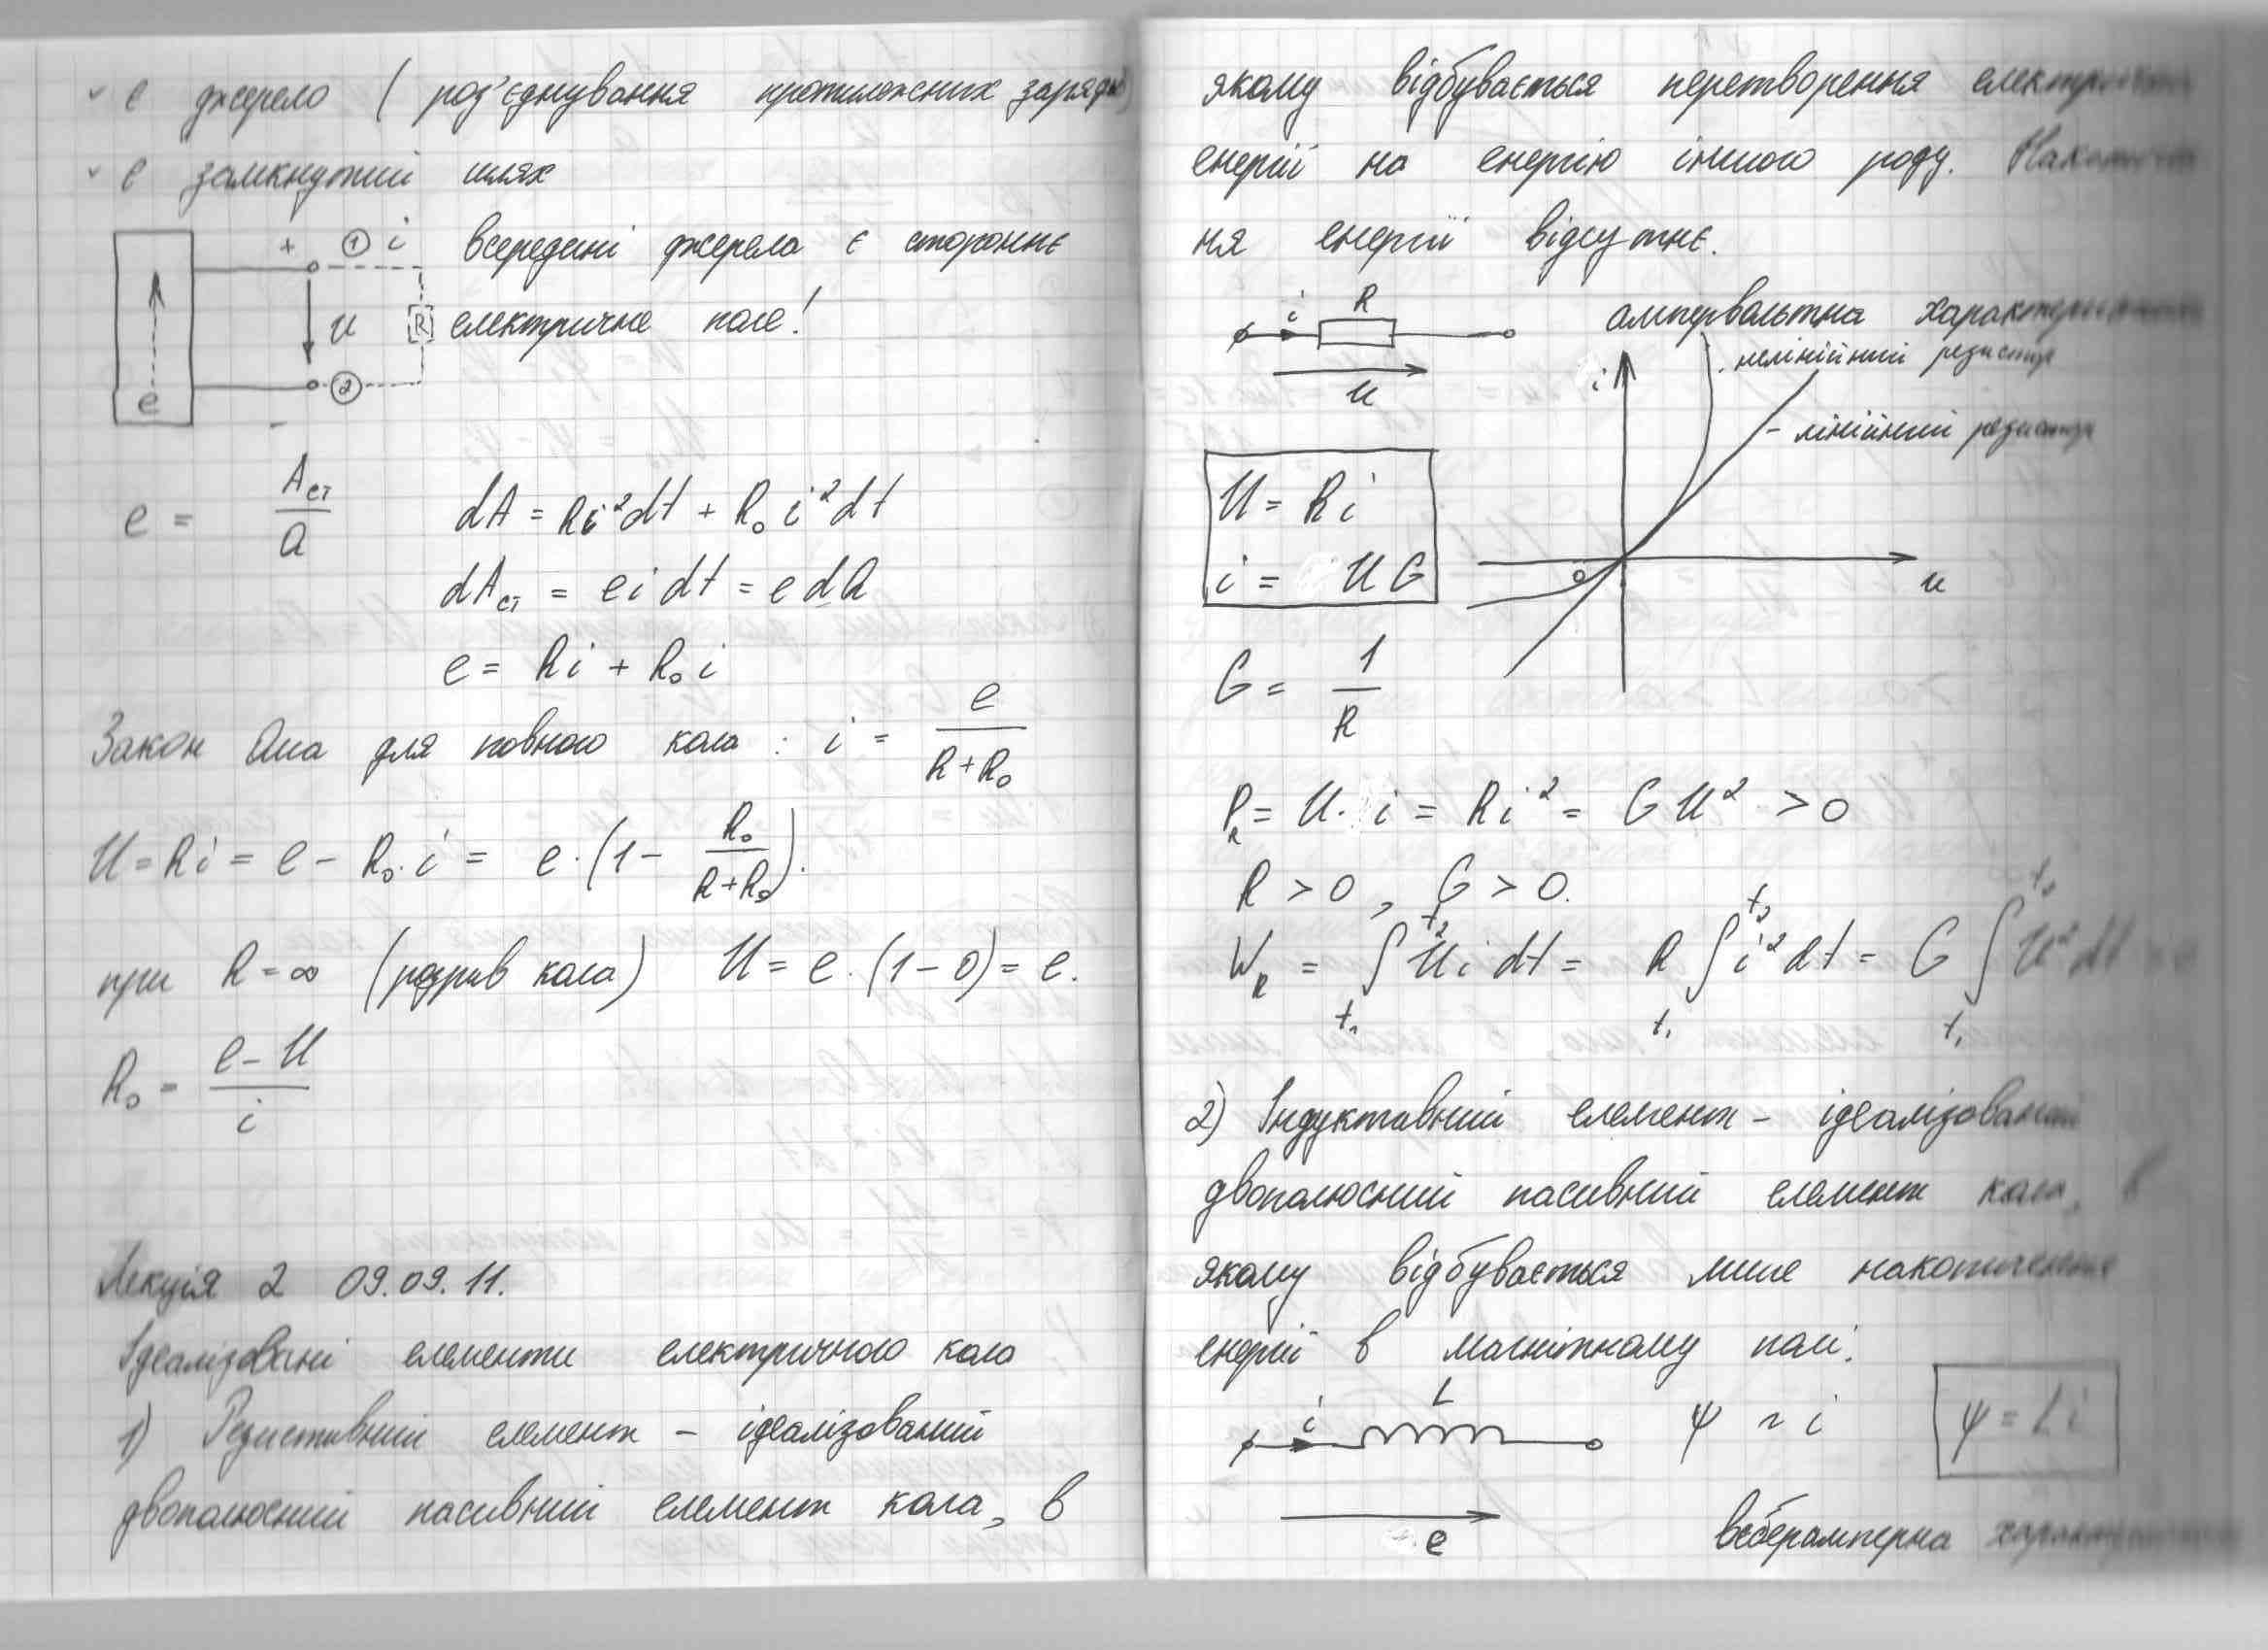 є джерело ( роз'єднування протилежних зарядів)
є замкнутий шлях
+ ① i всередині джерела є стороннє
U R електричне поле!
e ②
-
e = Aст / Q
dA = Ri²dt + R₀i²dt
dAст = ei dt = e dQ
e = Ri + R₀i
Закон Ома для повного кола : i = e / (R + R₀)
U = Ri = e - R₀·i = e·(1 - R₀ / (R+R₀)).
при R = ∞ (розрив кола) U = e·(1-0) = e.
R₀ = (e - U) / i
Лекція 2 09.09.11.
Ідеалізовані елементи електричного кола
1) Резистивний елемент - ідеалізований
двополюсний пасивний елемент кола, в
якому відбувається перетворення
енергії на енергію іншого роду.
ня енергії відсутнє.
i R
U
ампервольтна характеристика
нелінійний резистор
- лінійний резистор
i
0
u
U = Ri
i = UG
G = 1 / R
P_R = U·i = Ri² = GU² > 0
R > 0, G > 0.
W_R = ∫_{t₁}^{t₂} Ui dt = R ∫_{t₁}^{t₂} i² dt = G ∫_{t₁}^{t₂} U² dt
2) Індуктивний елемент - ідеалізований
двополюсний пасивний елемент кола, в
якому відбувається лише накопичення
енергії в магнітному полі.
i L ψ ~ i ψ = Li
e
вебeрамперна характеристика